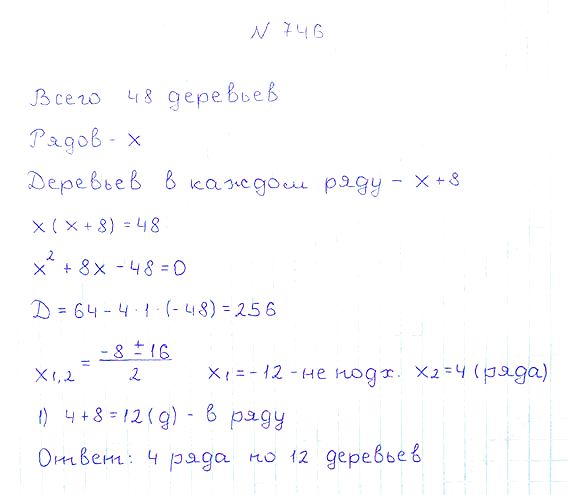 N 746
Всего 48 деревьев
Рядов - x
Деревьев в каждом ряду - x+8
x(x+8)=48
x² + 8x - 48 = 0
D = 64 - 4 · 1 · (-48) = 256
x₁,₂ = (-8 ± 16)/2 x₁ = -12 - не подх. x₂ = 4 (ряда)
1) 4+8=12(д) - в ряду
Ответ: 4 ряда по 12 деревьев